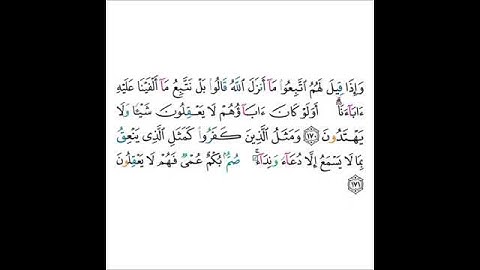 وَإِذَا قِيلَ لَهُمُ ٱتَّبِعُوا۟ مَآ أَنزَلَ ٱللَّهُ قَالُوا۟ بَلْ نَتَّبِعُ مَآ أَلْفَيْنَا عَلَيْهِ
ءَابَآءَنَآ ۗ أَوَلَوْ كَانَ ءَابَآؤُهُمْ لَا يَعْقِلُونَ شَيْـًٔا وَلَا
يَهْتَدُونَ ١٧٠ وَمَثَلُ ٱلَّذِينَ كَفَرُوا۟ كَمَثَلِ ٱلَّذِى يَنْعِقُ
بِمَا لَا يَسْمَعُ إِلَّا دُعَآءً وَنِدَآءً ۚ صُمٌّۢ بُكْمٌ عُمْىٌ فَهُمْ لَا يَعْقِلُونَ
١٧١